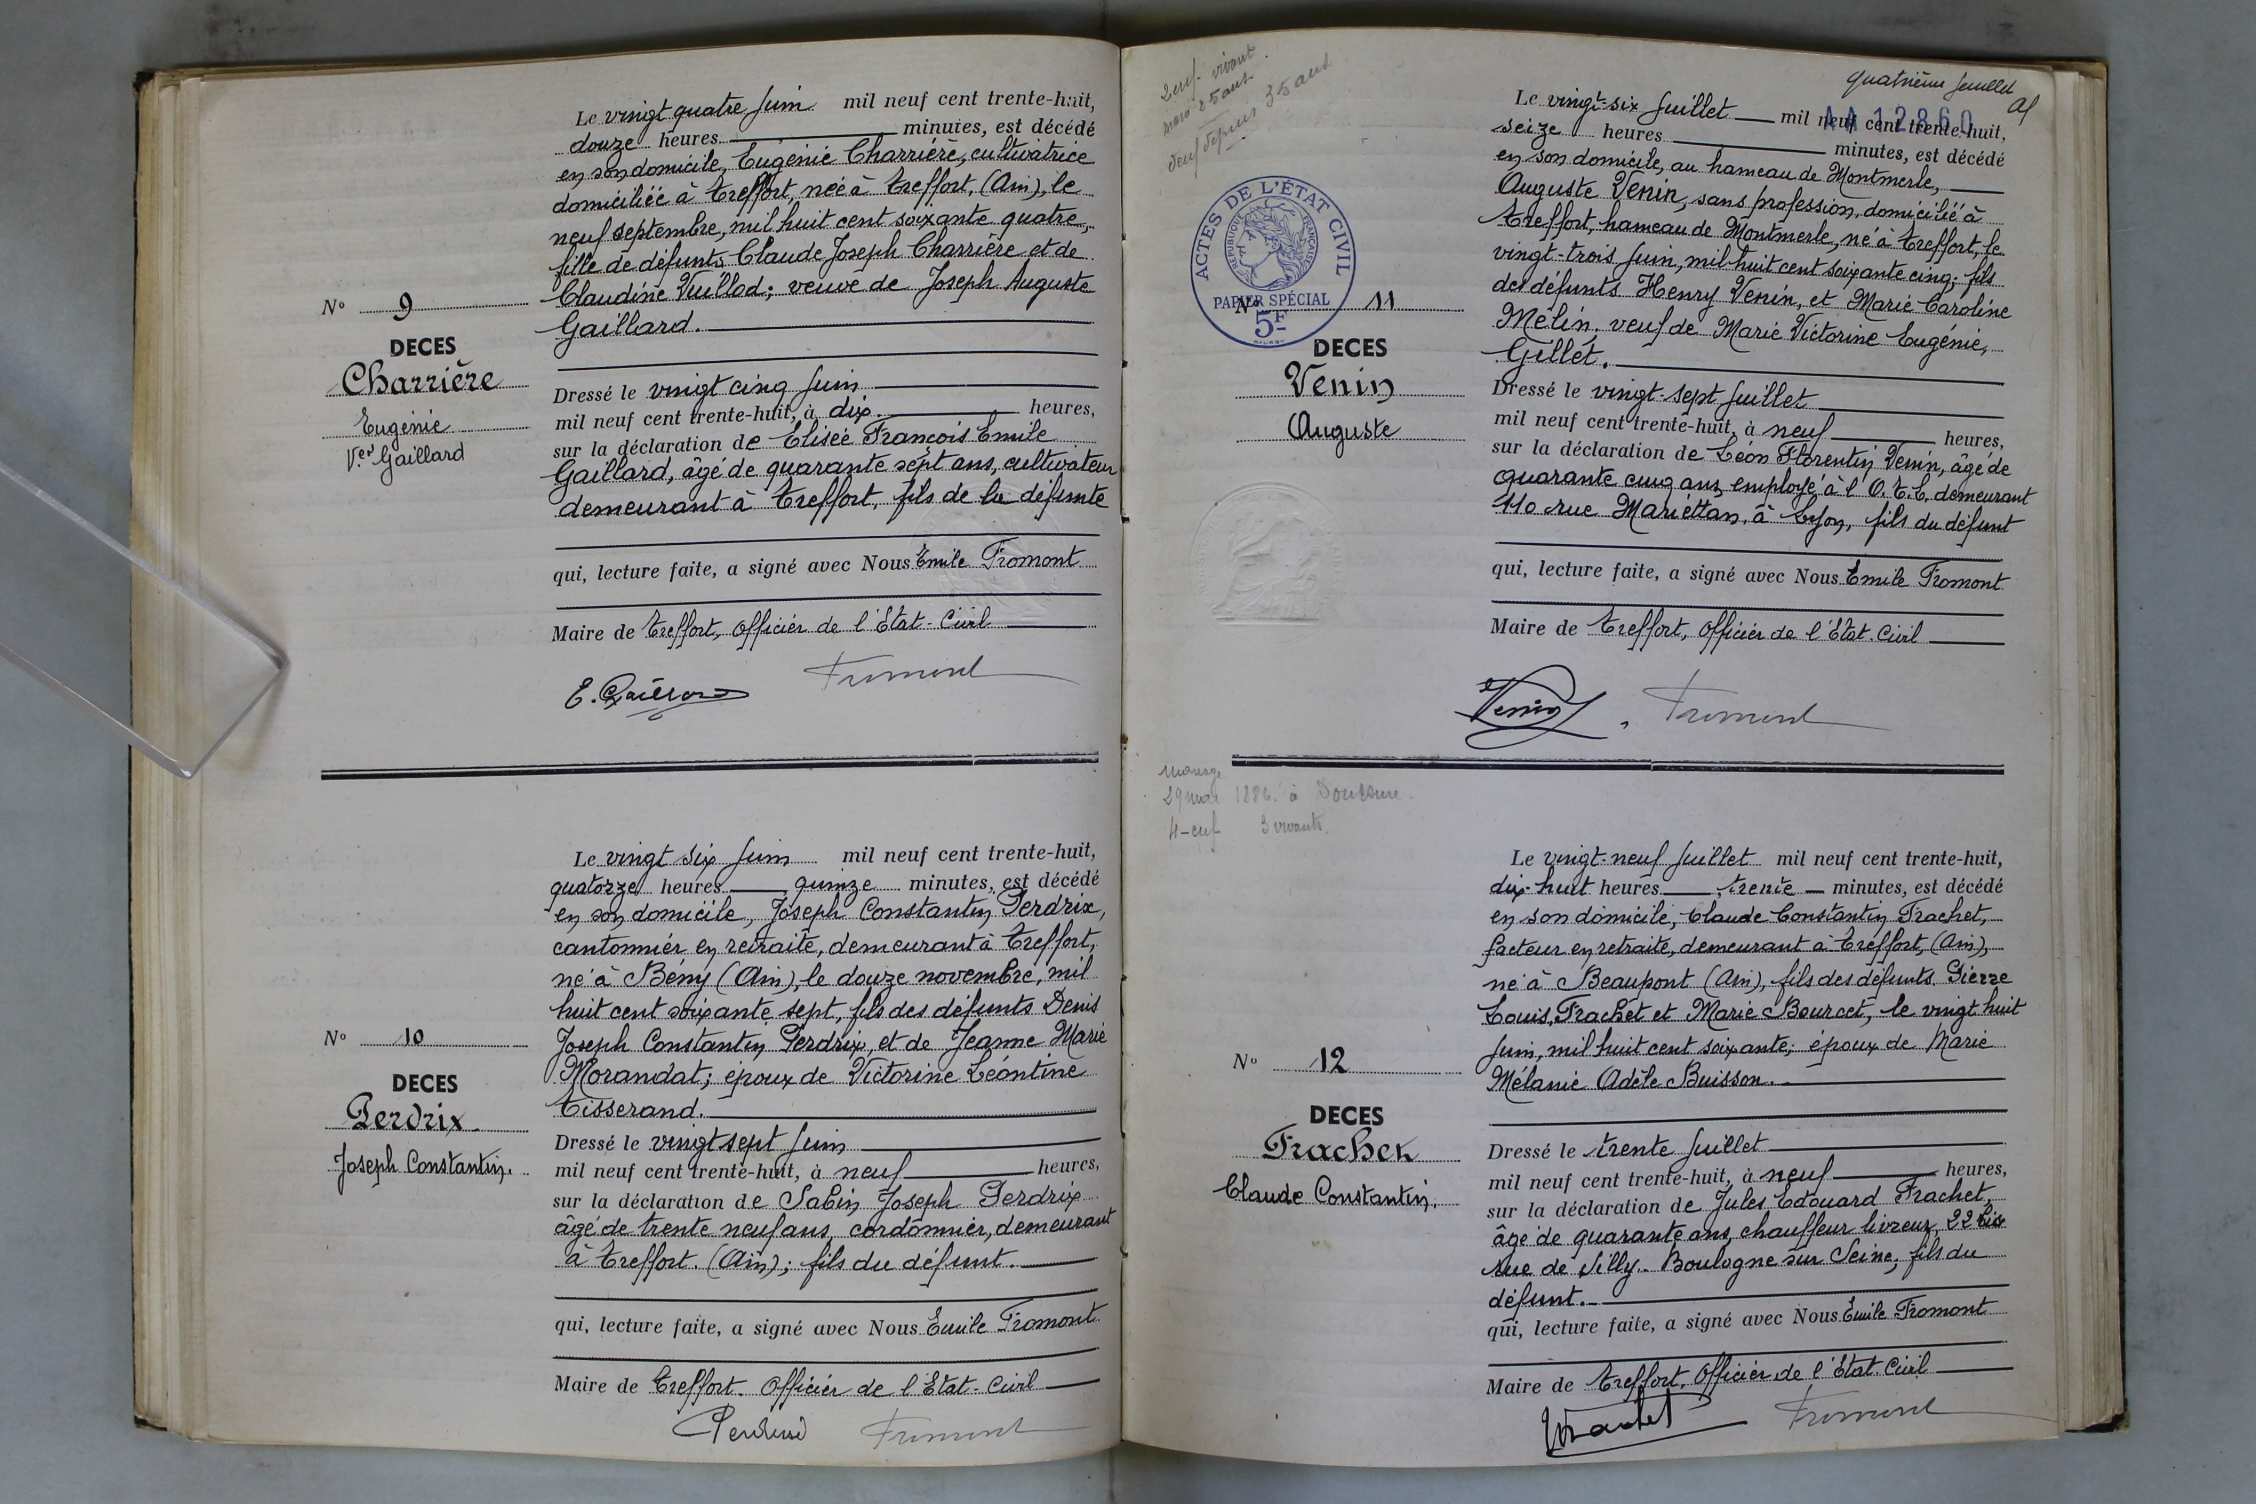 Le vingt quatre Juin mil neuf cent trente-huit,
douze heures minutes, est décédé
en son domicile, Eugénie Charrière, cultivatrice
domiciliée à Treffort, née à Treffort, (Ain), le
neuf septembre, mil huit cent soixante quatre,
fille de défunts Claude Joseph Charrière et de
Claudine Vuillod; veuve de Joseph Auguste
Gaillard.
No 9
DECES
Charrière
Eugénie
Vve Gaillard
Dressé le vingt cinq Juin
mil neuf cent trente-huit, à dix heures,
sur la déclaration de Elisée François Emile
Gaillard, âgé de quarante sept ans, cultivateur
demeurant à Treffort, fils de la défunte
qui, lecture faite, a signé avec Nous Emile Fromont
Maire de Treffort, Officier de l'Etat-Civil
E. Gaillard Fromont
Le vingt six Juin mil neuf cent trente-huit,
quatorze heures quinze minutes, est décédé
en son domicile, Joseph Constantin Perdrix,
cantonnier en retraite, demeurant à Treffort,
né à Bény (Ain), le douze novembre, mil
huit cent soixante sept, fils des défunts Denis
Joseph Constantin Perdrix, et de Jeanne Marie
Morandat; époux de Victorine Léontine
Tisserand.
No 10
DECES
Perdrix
Joseph Constantin.
Dressé le vingt sept Juin
mil neuf cent trente-huit, à neuf heures,
sur la déclaration de Sabin Joseph Perdrix
âgé de trente neuf ans, cordonnier, demeurant
à Treffort. (Ain); fils du défunt.
qui, lecture faite, a signé avec Nous Emile Fromont
Maire de Treffort. Officier de l'Etat-Civil
Perdrix Fromont
2 enf. vivant.
veuf depuis 35 ans
quatrième feuillet
AA 12860
ACTES DE L'ÉTAT CIVIL
RÉPUBLIQUE FRANÇAISE
PAPIER SPÉCIAL
5F
Le vingt-six Juillet mil neuf cent trente-huit,
seize heures minutes, est décédé
en son domicile, au hameau de Montmerle,
Auguste Venin, sans profession, domicilié à
Treffort, hameau de Montmerle, né à Treffort, le
vingt-trois Juin, mil huit cent soixante cinq; fils
des défunts Henry Venin, et Marie Caroline
Mélin, veuf de Marie Victorine Eugénie,
Gillet.
No 11
DECES
Venin
Auguste
Dressé le vingt-sept Juillet
mil neuf cent trente-huit, à neuf heures,
sur la déclaration de Léon Florentin Venin, âgé de
quarante cinq ans, employé à l'O.T.L. demeurant
110 rue Mariéttan, à Lyon, fils du défunt
qui, lecture faite, a signé avec Nous Emile Fromont
Maire de Treffort, Officier de l'Etat-Civil
Venin Fromont
Mariage
29 mai 1886 à
4 enf 3 vivants.
Le vingt-neuf Juillet mil neuf cent trente-huit,
dix-huit heures trente minutes, est décédé
en son domicile, Claude Constantin Frachet,
facteur en retraite, demeurant à Treffort, (Ain),
né à Beaupont (Ain), fils des défunts Pierre
Louis Frachet et Marie Bourcet, le vingt huit
Juin, mil huit cent soixante; époux de Marie
Mélanie Adèle Buisson.
No 12
DECES
Frachet
Claude Constantin.
Dressé le trente Juillet
mil neuf cent trente-huit, à neuf heures,
sur la déclaration de Jules Edouard Frachet,
âgé de quarante ans, chauffeur livreur, 22 bis
rue de Silly. Boulogne sur Seine, fils du
défunt.
qui, lecture faite, a signé avec Nous Emile Fromont
Maire de Treffort, Officier de l'Etat-Civil
Frachet Fromont